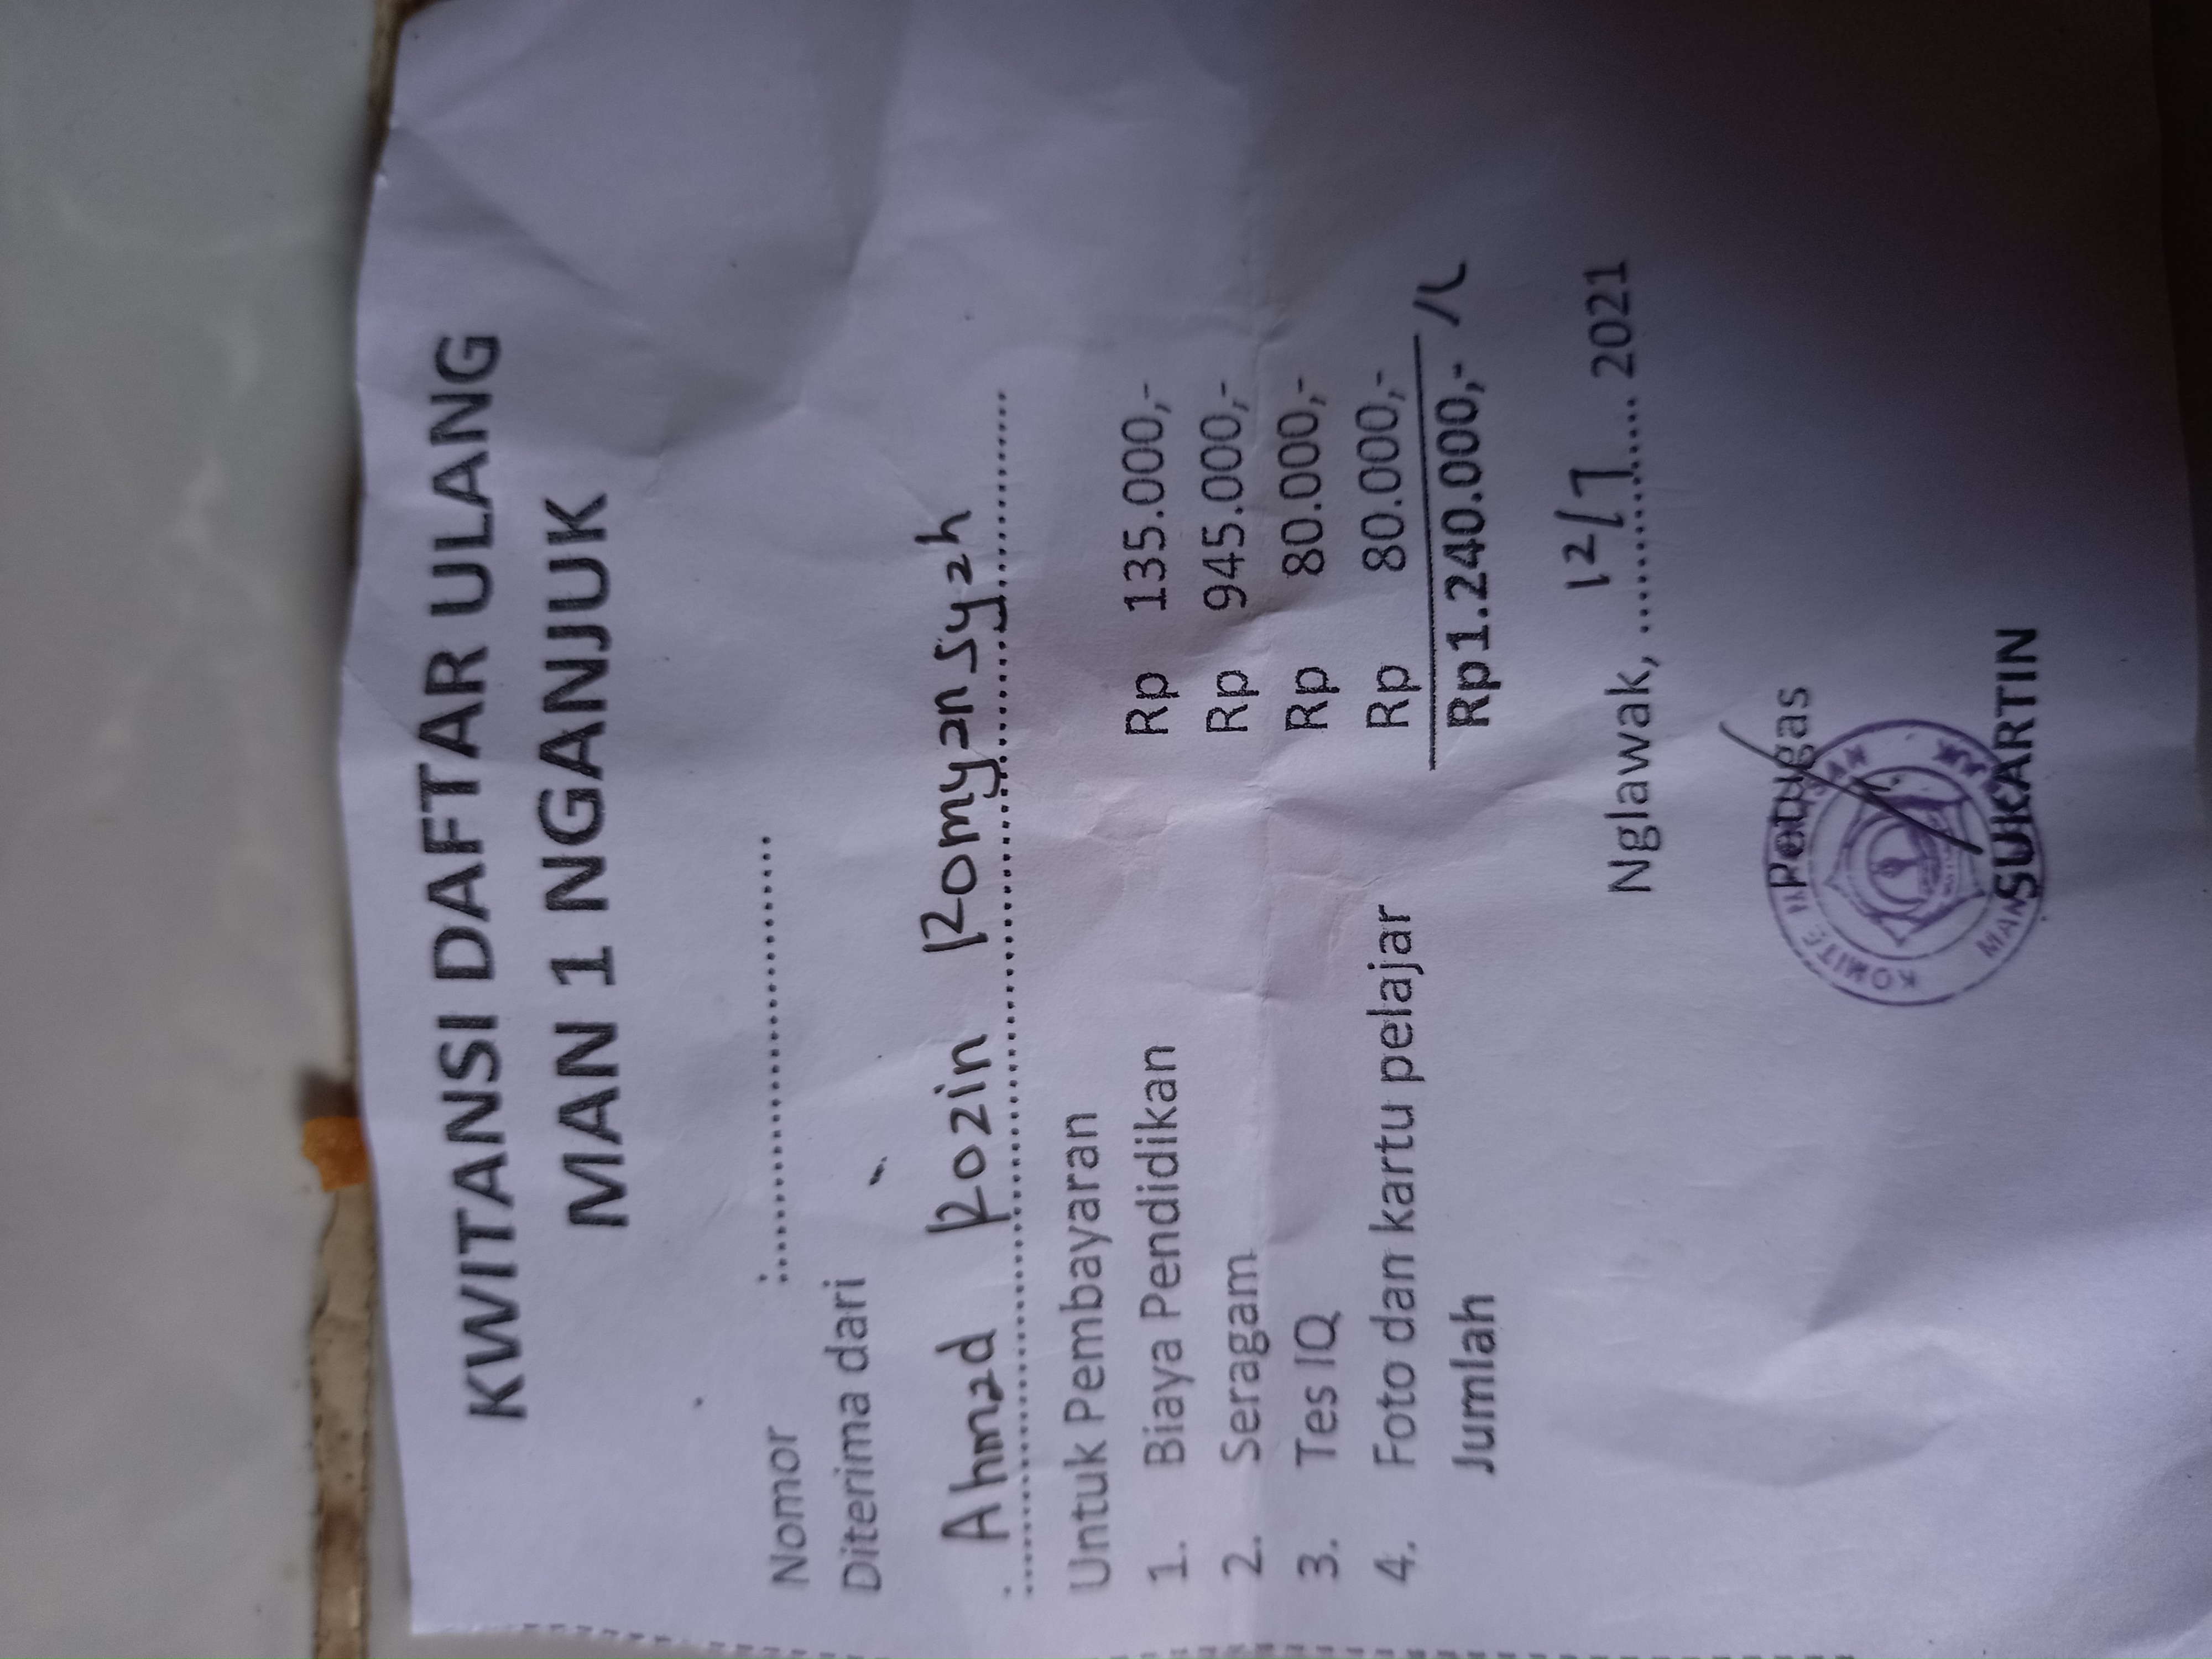 KWITANSI DAFTAR ULANG
MAN 1 NGANJUK
Nomor :...........................
Diterima dari
Ahmad Rozin Romyansyah
Untuk Pembayaran
1. Biaya Pendidikan Rp 135.000,-
2. Seragam Rp 945.000,-
3. Tes IQ Rp 80.000,-
4. Foto dan kartu pelajar Rp 80.000,-
Jumlah Rp1.240.000,-
Nglawak, 12/7 2021
Petugas
KOMITE
MAN
SUKARTIN